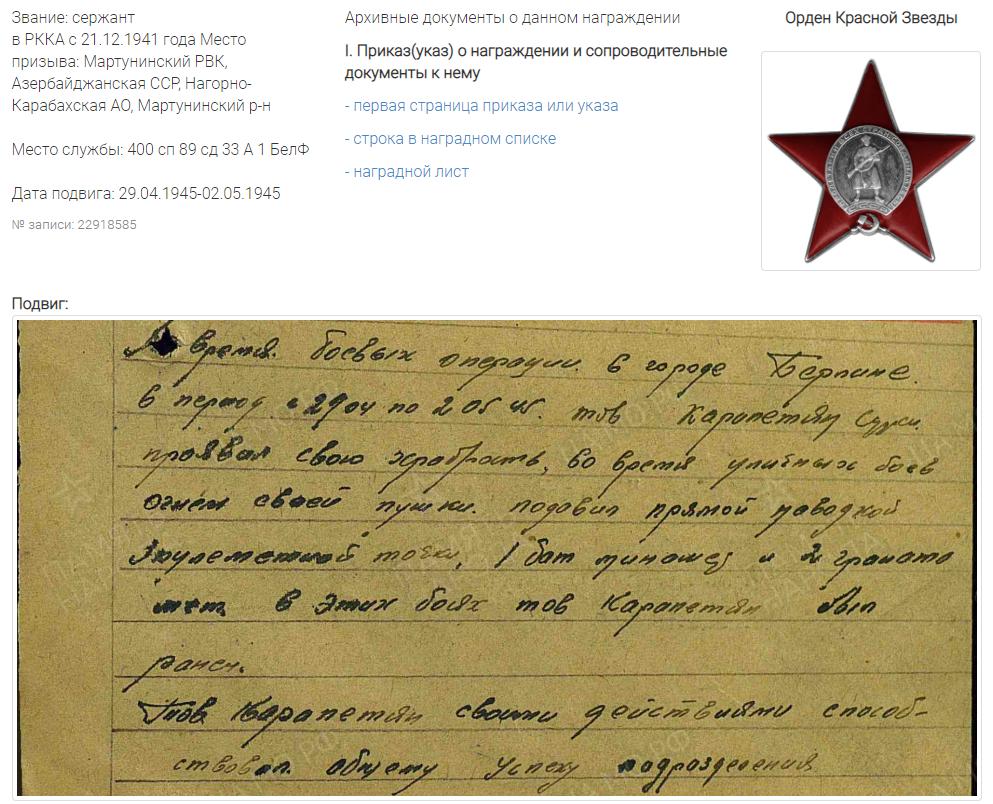 Звание: сержант
в РККА с 21.12.1941 года Место
призыва: Мартунинский РВК,
Азербайджанская ССР, Нагорно-
Карабахская АО, Мартунинский р-н
Место службы: 400 сп 89 сд 33 А 1 БелФ
Дата подвига: 29.04.1945-02.05.1945
№ записи: 22918585
Архивные документы о данном награждении
I. Приказ(указ) о награждении и сопроводительные
документы к нему
- первая страница приказа или указа
- строка в наградном списке
- наградной лист
Орден Красной Звезды
Подвиг:
время. боевых операции. в городе Берлине.
в период с 29 04 по 2 05 45. тов Карапетян
проявил свою храбрость, во время уличных боев
огнем своей пушки. подавил прямой наводкой
3 пулеметной точки, 1 бат миномет и 2 гранато
мет в этих боях тов Карапетян был
ранен.
Тов Карапетян своими действиями способ-
ствовал общему успеху подразделения